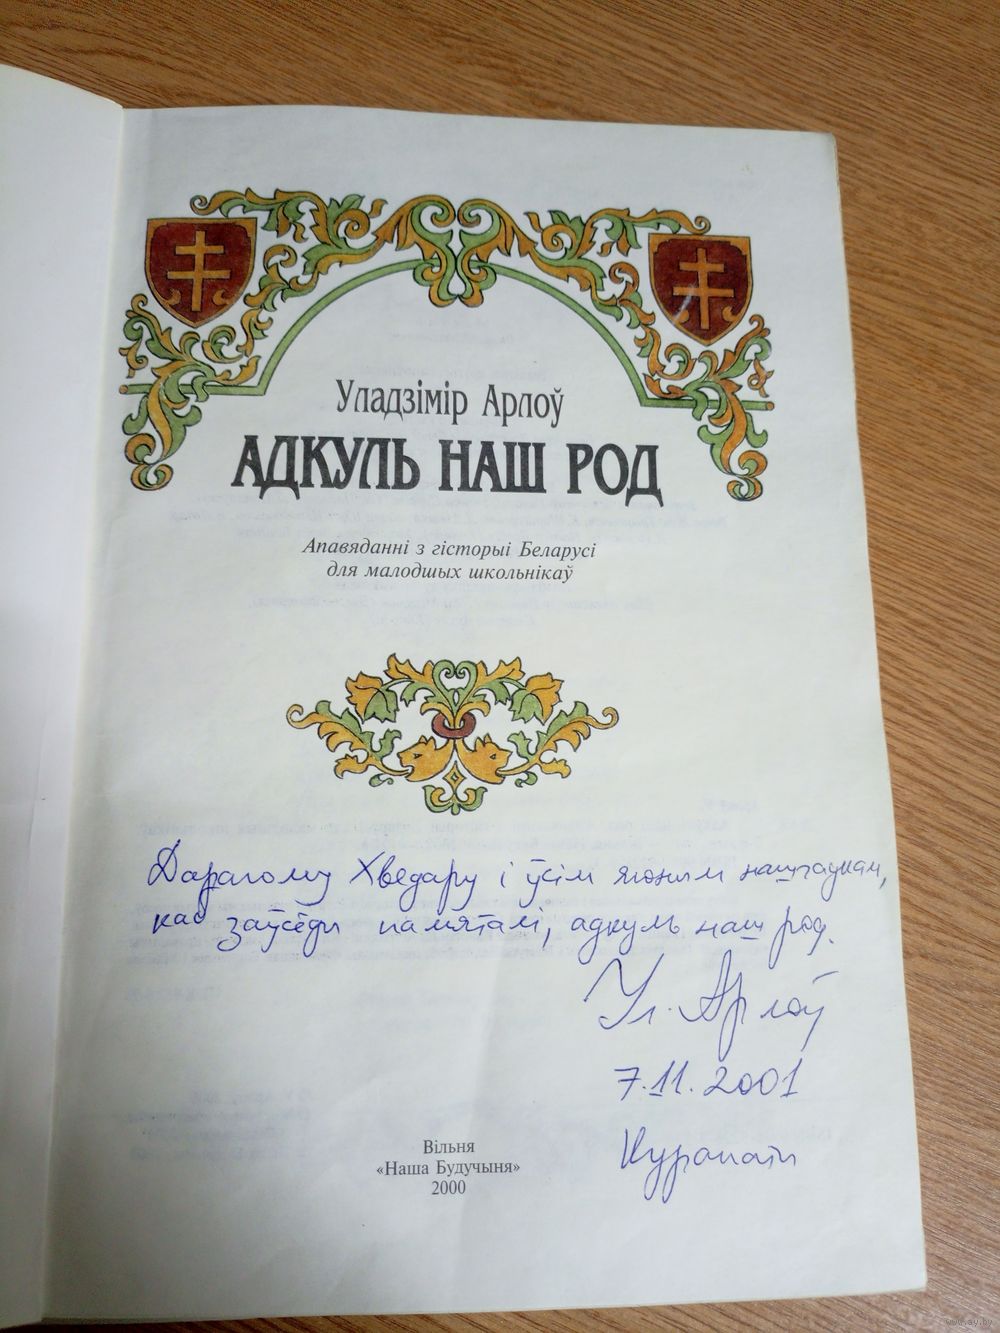 Уладзімір Арлоў
АДКУЛЬ НАШ РОД
Апавяданні з гісторыі Беларусі
для малодшых школьнікаў
Дарагому Хведару і ўсім ягоным нашчадкам,
каб заўсёды памяталі, адкуль наш род.
Ул. Арлоў
7.11.2001
Курапаты
Вільня
«Наша Будучыня»
2000
www.ay.by